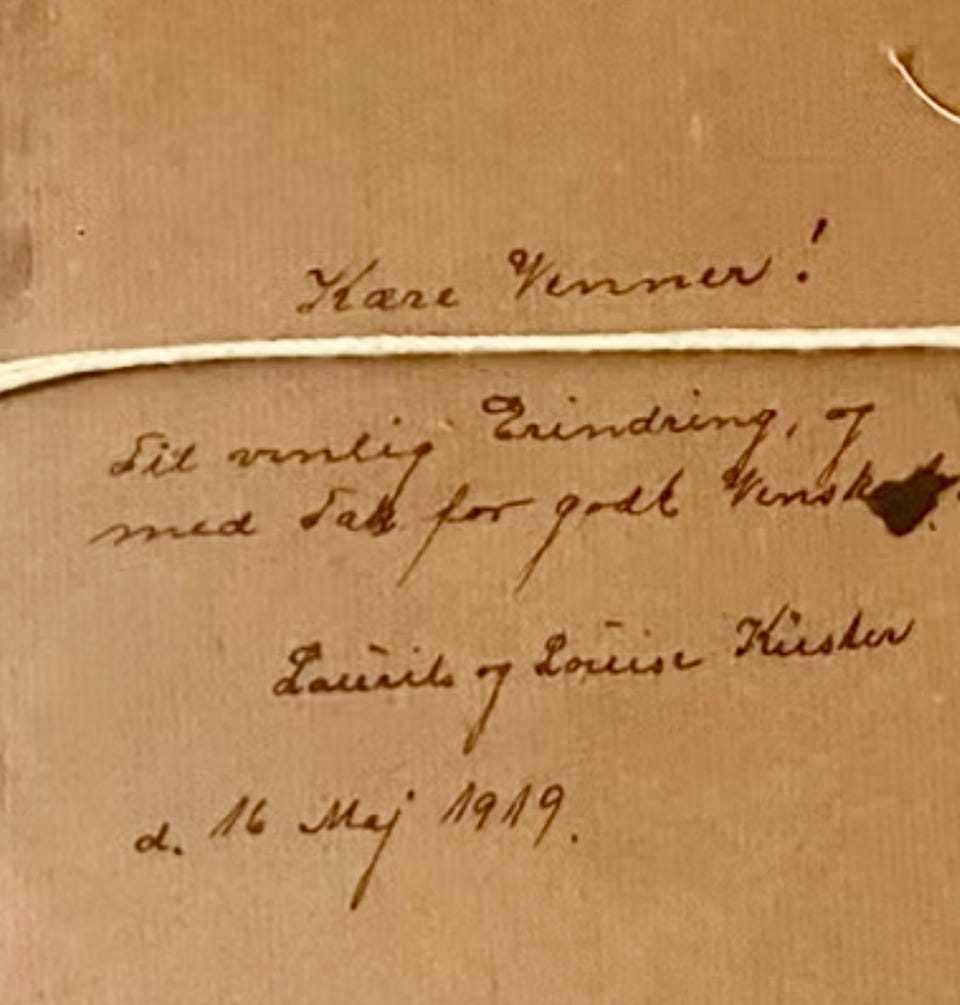 Kære Venner!
Til venlig Erindring, og
med Tak for godt
Laurits og Louise Küster
d. 16 Maj 1919.